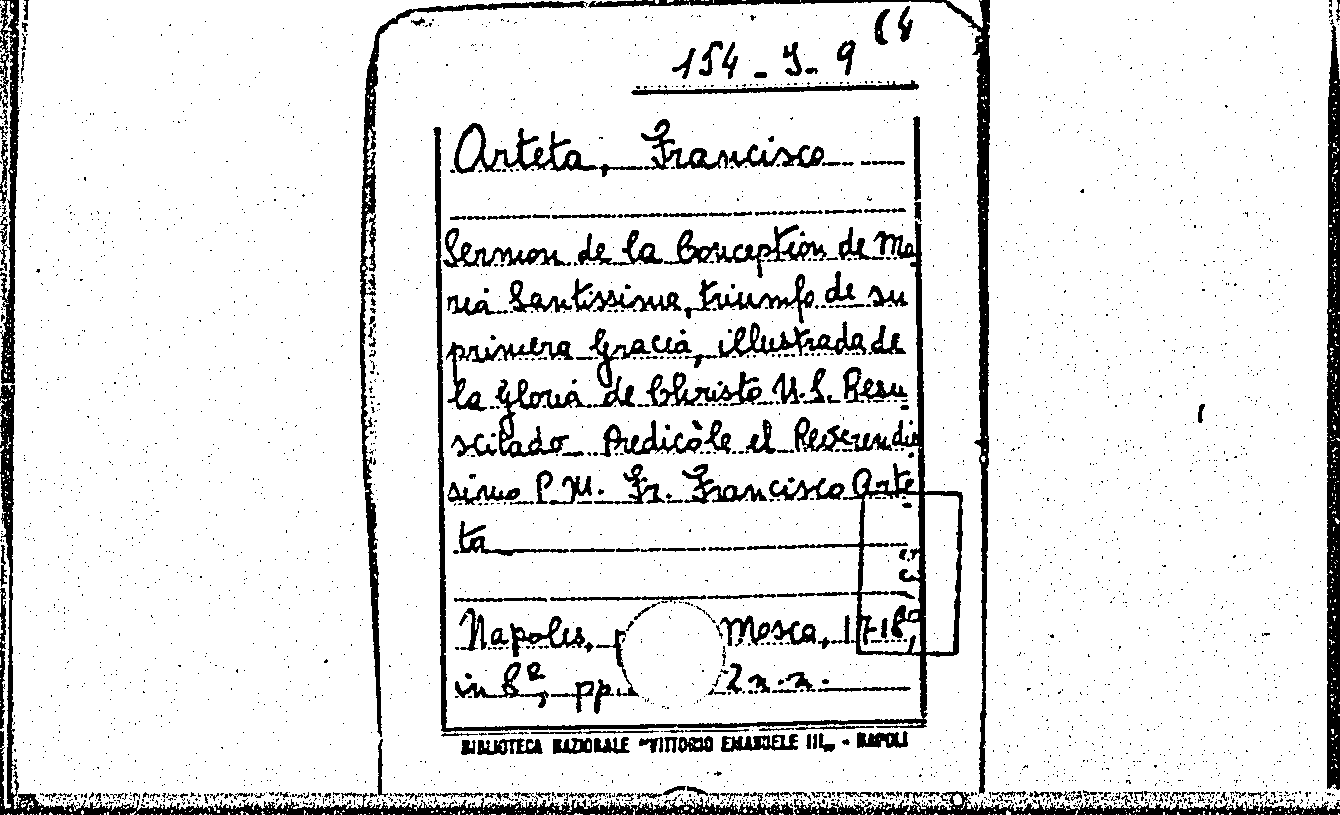 154-J-9 (4
Arteta, Francisco
Sermon de la Conception de Ma
ria Santissima, triumfo de su
primera Gracia, illustrada de
la Gloria de Christo N.S. Resu
scitado Predicòle el Reverendis
simo P.M. Fr. Francisco Arte
ta
Napoles, Mosca, 1718
in 8º, pp. 2 n.n.
BIBLIOTECA NAZIONALE "VITTORIO EMANUELE III" - NAPOLI